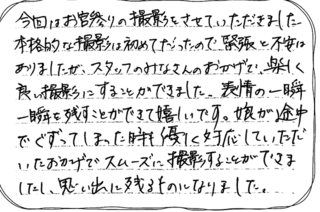 今回はお宮参りの撮影をさせていただきました
本格的な撮影は初めてだったので緊張と不安は
ありましたが、スタッフのみなさんのおかげで、楽しく
良い撮影にすることができました。表情の一瞬
一瞬を残すことができて嬉しいです。娘が途中
でぐずってしまった時も優しく対応していただ
いたおかげでスムーズに撮影することができま
したし、思い出に残るものになりました。